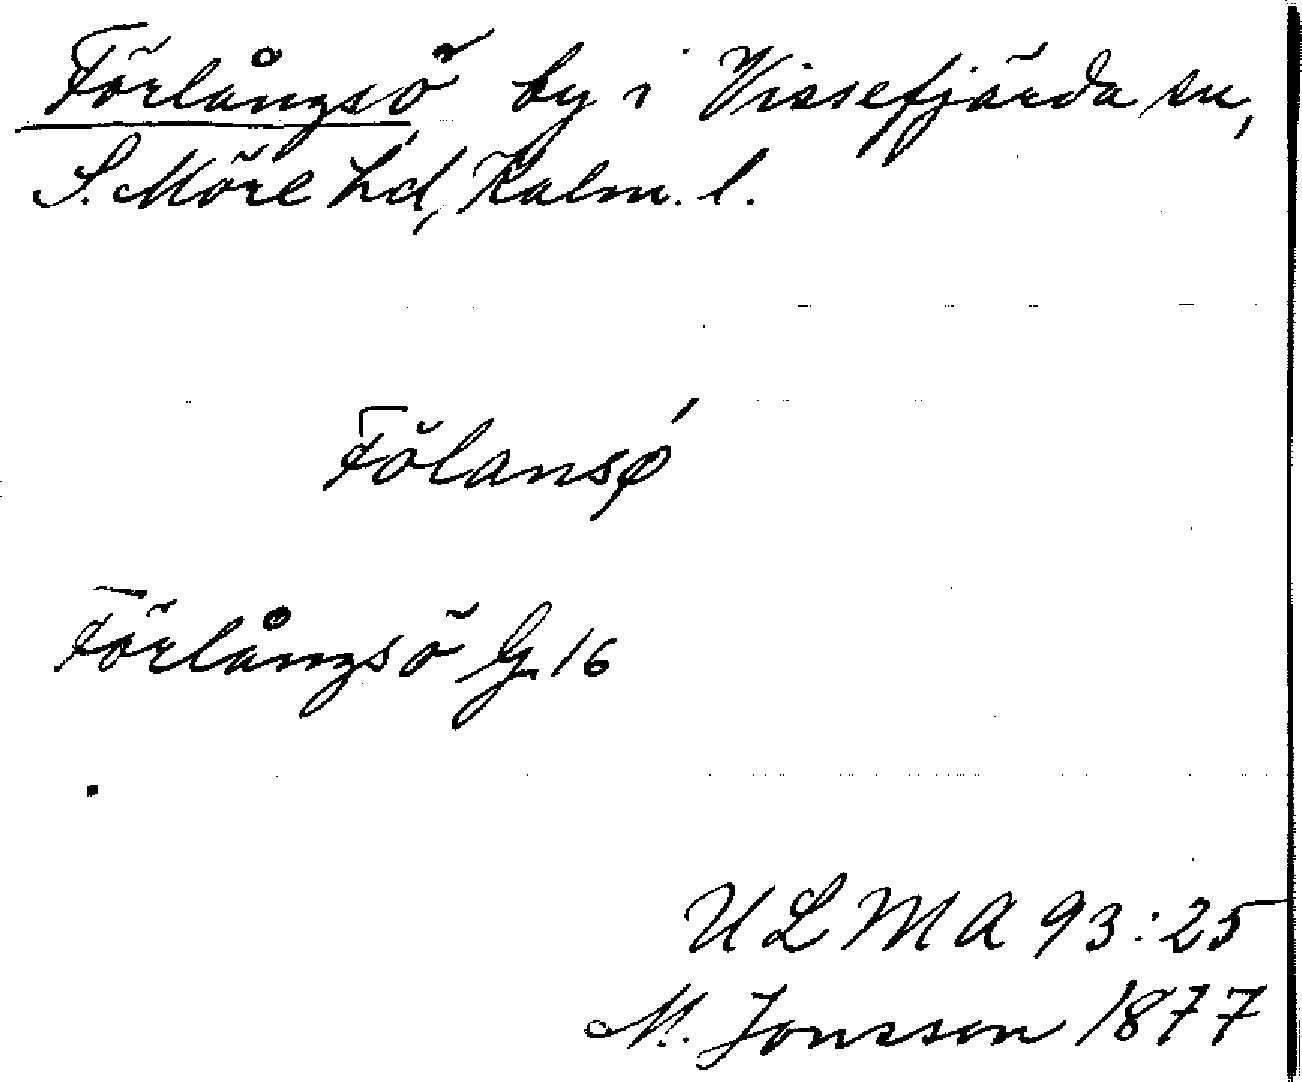 Förlångsö by i Vissefjärda sn,
S. Möre hd, Kalm. l.
Fölansø´
Förlångsö G. 16
ULMA 93:25
M. Jonsson 1877